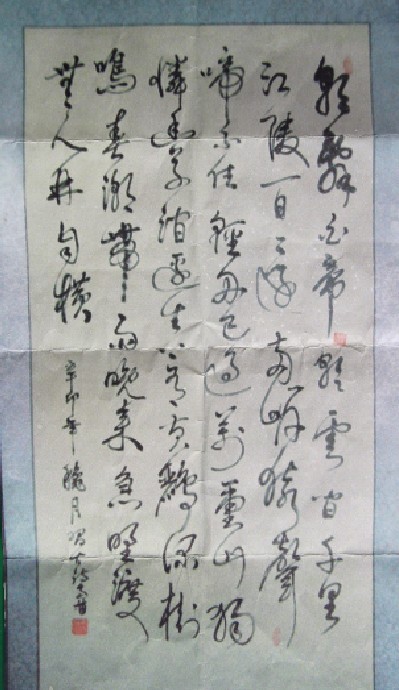 朝辭白帝彩雲間千里
江陵一日還兩岸猿聲
啼不住輕舟已過萬重山獨
憐幽草澗邊生上有黃鸝深樹
鳴春潮帶雨晚來急野渡
無人舟自橫
辛卯年臘月